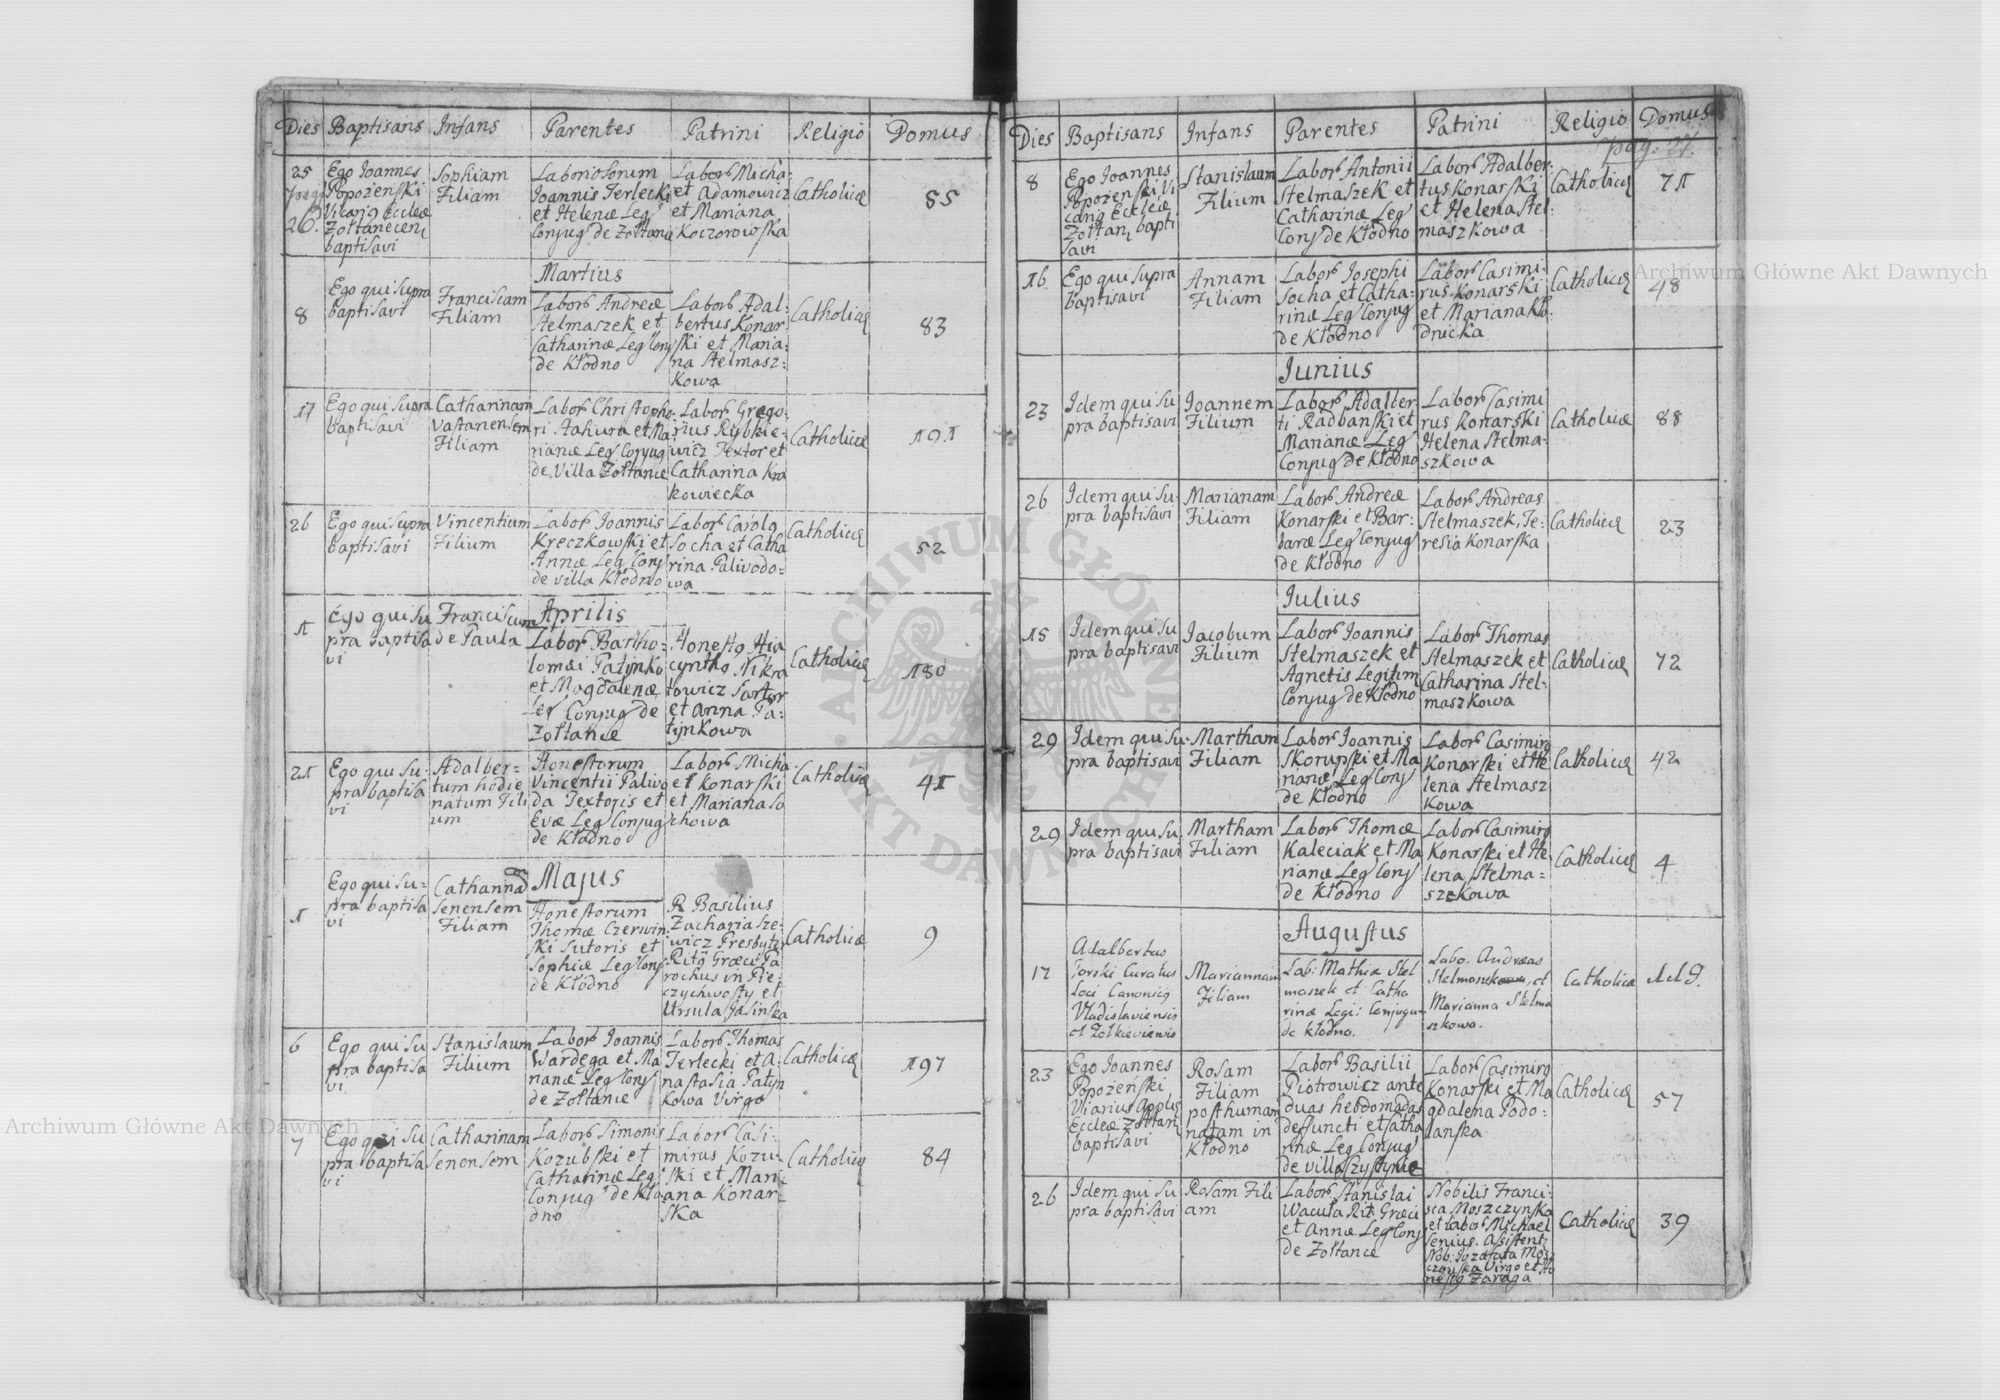 Dies Baptisans Infans Parentes Patrini Religio Domus
25
pag:
26.
Ego Ioannes
Popożenſki
Vicariꝯ Eccleæ
Zołtanecenſ
baptiſavi
Sophiam
Filiam
Laboriosorum
Ioannis Terlecki
et Helenæ Leg
Conjug de Zołtance
Labors Micha:
et Adamowicz
et Mariana
Koczorowſka
Catholicæ
55
Martius
8
Ego qui supra
baptiſavi
Franciscam
Filiam
Labors Andreæ
Stelmaszek et
Catharinæ Leg Conj
de Kłodno
Labors Adal-
bertus Konar
ſki et Maria:
na Stelmasz:
kowa
Catholicæ
83
17
Ego qui supra
baptiſavi
Catharinam
Vastanensem
Filiam
Labors Chriſtopho:
ri Stahura et Ma:
rianæ Leg Conjug
de Villa Zołtance
Labors Grego:
rius Rybkie:
wicz Textor et
Catharina Kra
kowiecka
Catholicæ
191
26
Ego qui supra
baptiſavi
Vincentium
Filium
Labors Ioannis
Kreczkowſki et
Annæ Leg Conj
de villa Kłodno
Labors Carolꝯ
Socha et Catha
rina Palivodo=
wa
Catholicæ
52
Aprilis
1
Ego qui su
pra baptiſa
vi
Franciscum
de Paula
Labors Bartho=
lomæi Patynko
et Magdalenæ
Leg Conjug de
Zołtance
Honeſtꝯ Hia
cynthꝯ Nikra
towicz Sartor
et Anna Pa-
tynkowa
Catholicæ
180
21
Ego qui su-
pra baptiſa
vi
Adalber=
tum hodie
natum Fili
um
Honeſtorum
Vincentii Palivo
da Textoris et
Evæ Leg Conjug
de Kłodno
Labors Micha
el Konarſki
et Mariana So
chowa
Catholicæ
41
Majus
1
Ego qui su-
pra baptiſa
vi
Catharinã
Senensem
Filiam
Honeſtorum
Thomæ Czerwin:
ſki Sutoris et
Sophiæ Leg Conj
de Kłodno
R Basilius
Zachariasze-
wicz Presbyter
Ritꝯ Græci Pa
rochus in Pie-
czychwoſty et
Ursula Jasinſka
Catholicæ
9
6
Ego qui su
pra baptiſa
vi
Stanislaum
Filium
Labors Ioannis
Wardęga et Ma
rianæ Leg Conj
de Zołtance
Labors Thomas
Terlecki et A-
naſtasia Patyn
kowa Virgo
Catholicæ
197
7
Ego qui su
pra baptiſa
vi
Catharinam
Senensem
Labors Simonis
Kozubſki et
Catharinæ Leg
Conjug de Kło
dno
Labors Casi-
mirus Kozu-
ſki et Mari-
ana Konar-
ſka
Catholicæ
84
Dies Baptisans Infans Parentes Patrini Religio Domus
pag. 27.
8
Ego Ioannes
Popożenſki Vi
cariꝯ Eccleiæ
Zołtanſ bapti
ſavi
Stanislaum
Filium
Labors Antonii
Stelmaszek et
Catharinæ Leg
Conj de Kłodno
Labors Adalber:
tus Konarſki
et Helena Stel:
maszkowa
Catholicæ
71
16
Ego qui supra
baptiſavi
Annam
Filiam
Labors Josephi
Socha et Catha:
rinæ Leg Conjug
de Kłodno
Labors Casimi:
rus Konarſki
et Mariana Kło:
dnicka
Catholicæ
48
Junius
23
Idem qui su
pra baptiſavi
Ioannem
Filium
Labors Adalber:
ti Radbanſki et
Marianæ Leg
Conjug de Kłodno
Labors Casimi
rus Konarſki
Helena Stelma-
szkowa
Catholicæ
88
26
Idem qui su-
pra baptiſavi
Marianam
Filiam
Labors Andreæ
Konarſki et Bar-
baræ Leg Conjug
de Kłodno
Labors Andreas
Stelmaszek, Te-
resia Konarſka
Catholicæ
23
Iulius
15
Idem qui su
pra baptiſavi
Iacobum
Filium
Labors Ioannis
Stelmaszek et
Agnetis Legitim
Conjug de Kłodno
Labors Thomas
Stelmaszek et
Catharina Stel-
maszkowa
Catholicæ
72
29
Idem qui su-
pra baptiſavi
Martham
Filiam
Labors Ioannis
Skorupſki et Ma
rianæ Leg Conj
de Kłodno
Labors Casimirꝯ
Konarſki et He
lena Stelmasz
kowa
Catholicæ
42
29
Idem qui su
pra baptiſavi
Martham
Filiam
Labors Thomæ
Kaleciak et Ma
rianæ Leg Conj
de Kłodno
Labors Casimirꝯ
Konarſki et He
lena Stelma=
szkowa
Catholicæ
4
Auguſtus
17
Adalbertus
Gorski Curatus
Loci Canonicꝯ
Vladislaviensis
et Zołkieviensis
Mariannam
Filiam
Lab: Mathiæ Stel
maszek et Catha
rinæ Legi: Conjugu
de Kłodno.
Labo. Andreas
Stelmaszek et
Marianna Stelma
szkowa.
Catholicæ
119.
23
Ego Ioannes
Popożeńſki
Viarius Applis
Eccleæ Zołtanſ
baptiſavi
Rosam
Filiam
poſthumam
natam in
Kłodno
Labors Basilii
Piotrowicz ante
duas hebdomadas
deffuncti et Catha
rinæ Leg Conjug
de villa
Labors Casimirꝯ
Konarſki et Ma
gdalena Podo-
lanſka
Catholicæ
57
26
Idem qui su
pra baptiſavi
Rosam Fili
am
Labors Stanislai
Wacuła Rit Græci
et Annæ Leg Conj
de Zołtance
Nobilis Franci-
sca Moszczynſka
et Labors Michael
Senius. Aſsiſtent:
Nob: Jozafata Mosz
czynſka Virgo et Ho
neſtꝯ Zaraga
Catholicæ
39
Archiwum Główne Akt Dawnych
Archiwum Główne Akt Dawnych
ARCHIWUM GŁÓWNE AKT DAWNYCH